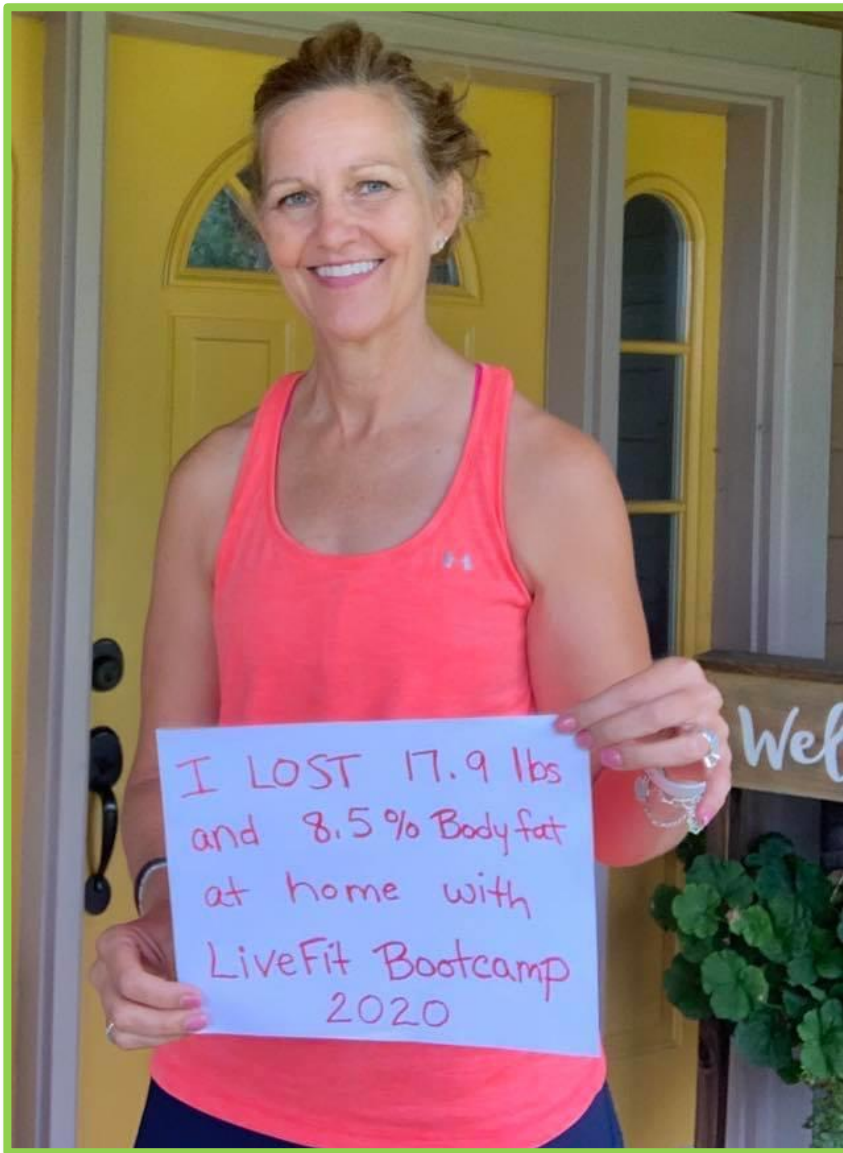 I LOST 17.9 lbs
and 8.5% Body fat
at home with
LiveFit Bootcamp
2020
Wel